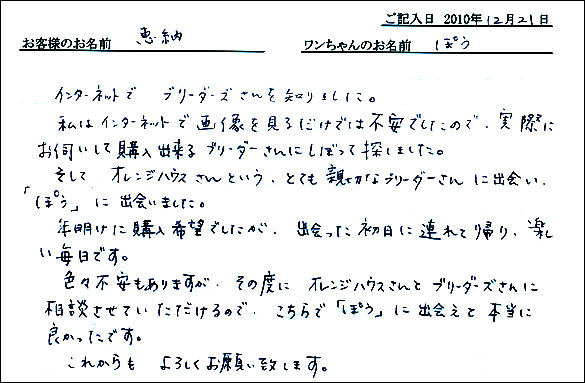 ご記入日 2010年12月21日
お客様のお名前 恵納 ワンちゃんのお名前 ぽう
インターネットで ブリーダーズさんを知りました。
私はインターネットで画像を見るだけでは不安でしたので、実際に
お伺いして購入出来るブリーダーさんにしぼって探しました。
そして オレンジハウスさんという、とても親切なブリーダーさんに出会い、
「ぽう」に出会いました。
年明けに購入希望でしたが、出会った初日に連れて帰り、楽し
い毎日です。
色々不安もありますが、その度に オレンジハウスさんとブリーダーズさんに
相談させていただけるので、こちらで「ぽう」に出会えて本当に
良かったです。
これからも よろしくお願い致します。